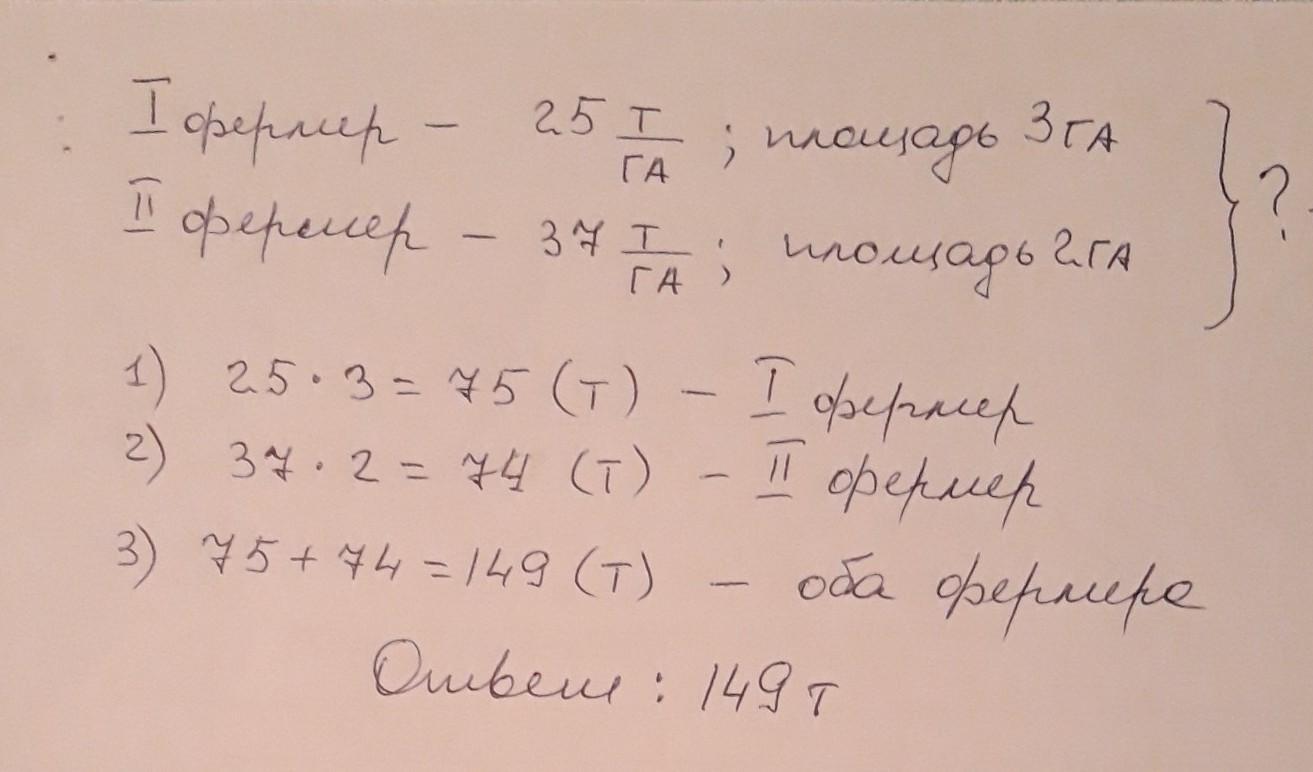 I фермер – 25 Т/ГА ; площадь 3 ГА
II фермер – 37 Т/ГА ; площадь 2 ГА
?
1) 25 · 3 = 75 (Т) – I фермер
2) 37 · 2 = 74 (Т) – II фермер
3) 75 + 74 = 149 (Т) – оба фермера
Ответ : 149 т